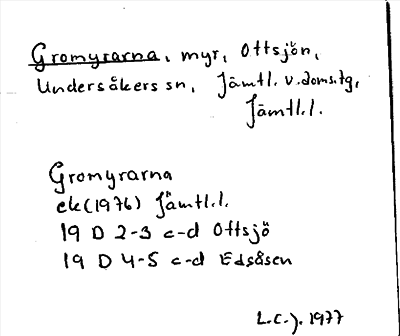 Gromyrarna, myr, Ottsjön,
Undersåkers sn, Jämtl. v. doms.tg,
Jämtl.l.
Gromyrarna
ek (1976) Jämtl.l.
19 D 2-3 c-d Ottsjö
19 D 4-5 c-d Edsåsen
L.C-J. 1977